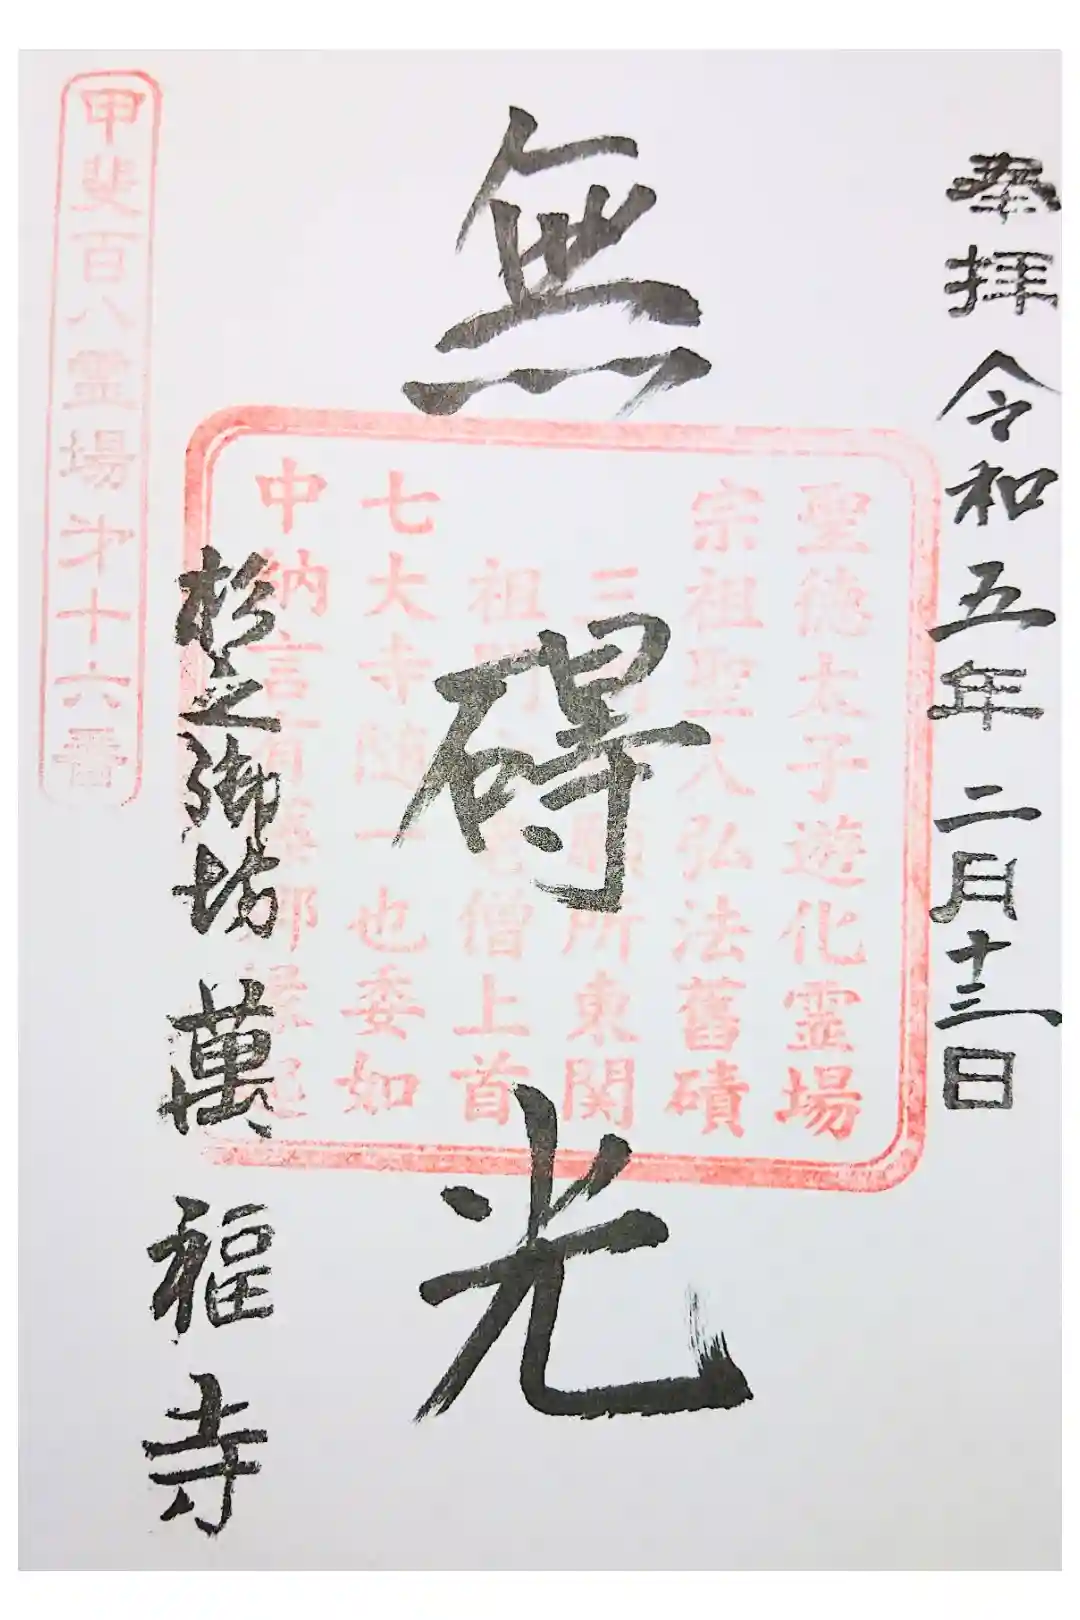 奉拝 令和五年 二月十三日
無碍光
聖徳太子遊化霊場
宗祖聖人弘法舊磧
三 所東関
祖 僧上首
七大寺随一也委如
中納言有
杉之御坊 萬福寺
甲斐百八霊場第十六番